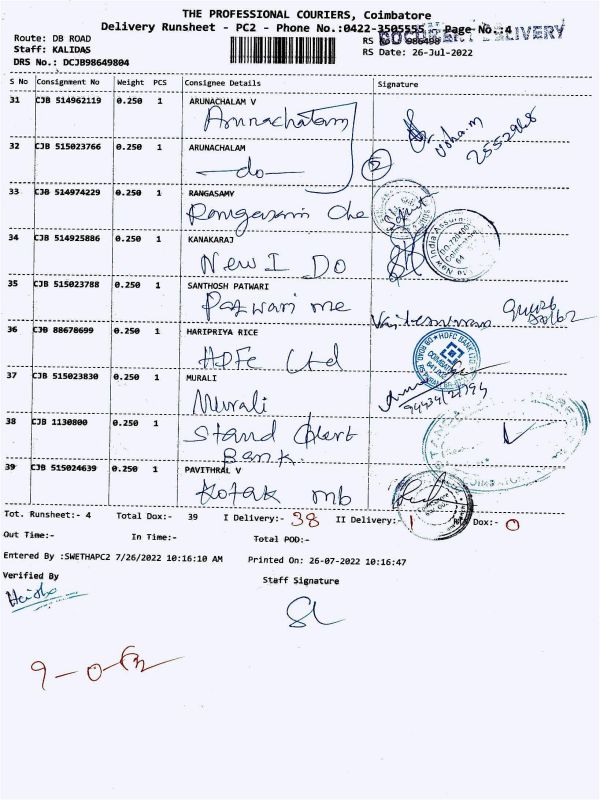 THE PROFESSIONAL COURIERS, Coimbatore
Delivery Runsheet - PC2 - Phone No.:0422-3505555 Page No.:4
DOCUMENT DELIVERY
Route: DB ROAD
RS No
Staff: KALIDAS
RS Date: 26-Jul-2022
DRS No.: DCJB98649804
S No Consignment No Weight PCS Consignee Details Signature
31 CJB 514962119 0.250 1 ARUNACHALAM V
Arunachalam
32 CJB 515023766 0.250 1 ARUNACHALAM
-do-
2
33 CJB 514974229 0.250 1 RANGASAMY
34 CJB 514925886 0.250 1 KANAKARAJ
New I Do
35 CJB 515023788 0.250 1 SANTHOSH PATWARI
Patwari me
36 CJB 88670699 0.250 1 HARIPRIYA RICE
HDFC Ltd
37 CJB 515023830 0.250 1 MURALI
Murali
38 CJB 1130800 0.250 1
Stand
Bank
39 CJB 515024639 0.250 1 PAVITHRAL V
Kotak mb
Tot. Runsheet:- 4 Total Dox:- 39 I Delivery:- 38 II Delivery:- 1 Dox:- 0
Out Time:- In Time:- Total POD:-
Entered By :SWETHAPC2 7/26/2022 10:16:10 AM Printed On: 26-07-2022 10:16:47
Verified By
Staff Signature